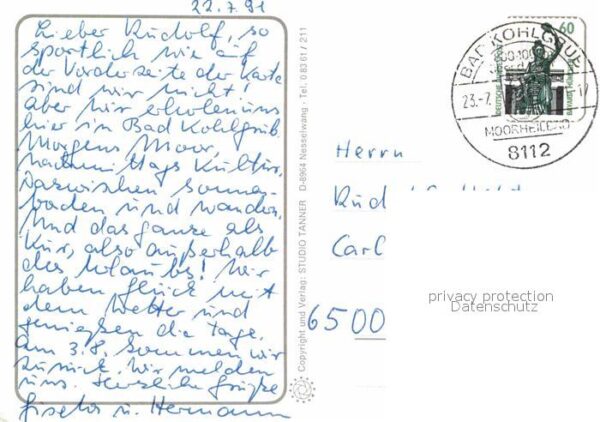 22.7.91
Lieber Rudolf, so
sportlich wie auf
der Vorderseite der Karte
sind wir nicht!
Aber wir erholen uns
hier in Bad Kohlgrub
Morgens Moor,
nachmittags Kultur,
dazwischen sonnen-
baden und wandern.
Und das ganze als
Kur, also außerhalb
des Urlaubs! Wir
haben Glück mit
dem Wetter und
genießen die Tage.
Am 3.8. kommen wir
zurück. Wir melden
uns. Herzliche Grüße
Gisela u. Hermann
Copyright und Verlag: STUDIO TANNER D-8964 Nesselwang · Tel. 08361/211
60
DEUTSCHE BUNDESPOST
BAVARIA MÜNCHEN
BAD KOHLGRUB
23.-7. -17
MOORHEILBAD
8112
Herrn
Rud
Carl
6500
privacy protection
Datenschutz